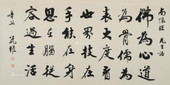 南懷瑾先生語
佛為心道
為骨儒為
表大度看
世界技在
手能在身
思在腦從
容過生活